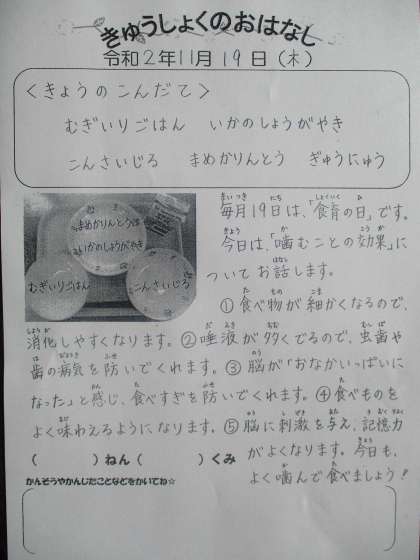 きゅうしょくのおはなし
令和2年11月19日（木）
＜きょうのこんだて＞
むぎいりごはん　いかのしょうがやき
こんさいじる　まめかりんとう　ぎゅうにゅう
まめかりんとう
いかのしょうがやき
むぎいりごはん
こんさいじる
毎月19日は、「食育の日」です。
今日は、「噛むことの効果」に
ついてお話します。
①食べ物が細かくなるので、
消化しやすくなります。②唾液が多くでるので、虫歯や
歯の病気を防いでくれます。③脳が「おなかいっぱいに
なった」と感じ、食べすぎを防いでくれます。④食べものを
よく味わえるようになります。⑤脳に刺激を与え、記憶力
がよくなります。今日も、
よく噛んで食べましょう！
（　　　）ねん（　　　）くみ
かんそうやかんじたことなどをかいてね☆